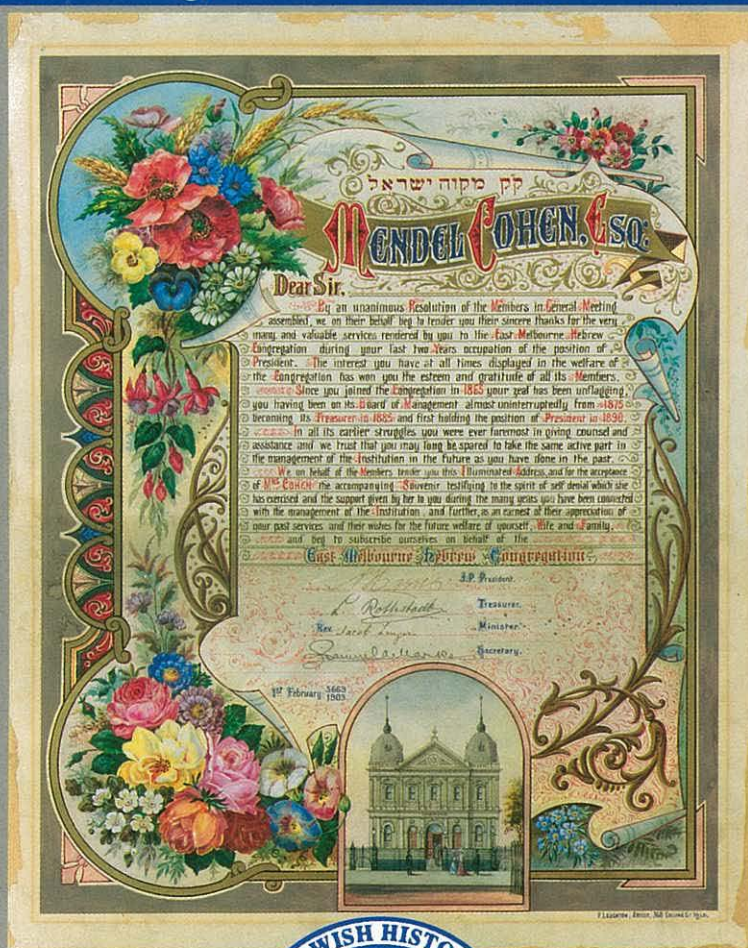 ק״ק מקוה ישראל
MENDEL COHEN, ESQ:
Dear Sir,
By an unanimous Resolution of the Members in General Meeting
assembled, we on their behalf beg to tender you their sincere thanks for the very
many and valuable services rendered by you to the East Melbourne Hebrew
Congregation during your last two Years occupation of the position of
President. The interest you have at all times displayed in the welfare of
the Congregation has won you the esteem and gratitude of all its Members.
Since you joined the Congregation in 1865 your zeal has been unflagging,
you having been on its Board of Management almost uninterruptedly from 1875
becoming its Treasurer in 1885 and first holding the position of President in 1890.
In all its earlier struggles you were ever foremost in giving counsel and
assistance and we trust that you may long be spared to take the same active part in
the management of the Institution in the future as you have done in the past.
We on behalf of the Members tender you this Illuminated Address, and for the acceptance
of Mrs COHEN the accompanying Souvenir testifying to the spirit of self denial which she
has exercised and the support given by her to you during the many years you have been connected
with the management of the Institution, and further, as an earnest of their appreciation of
your past services and their wishes for the future welfare of yourself, Wife and Family,
and beg to subscribe ourselves on behalf of the
East Melbourne Hebrew Congregation
J.P. President.
Rothstadt Treasurer.
Rev. Jacob Minister.
Samuel Secretary.
1st February 5663
1903
WISH HISTO